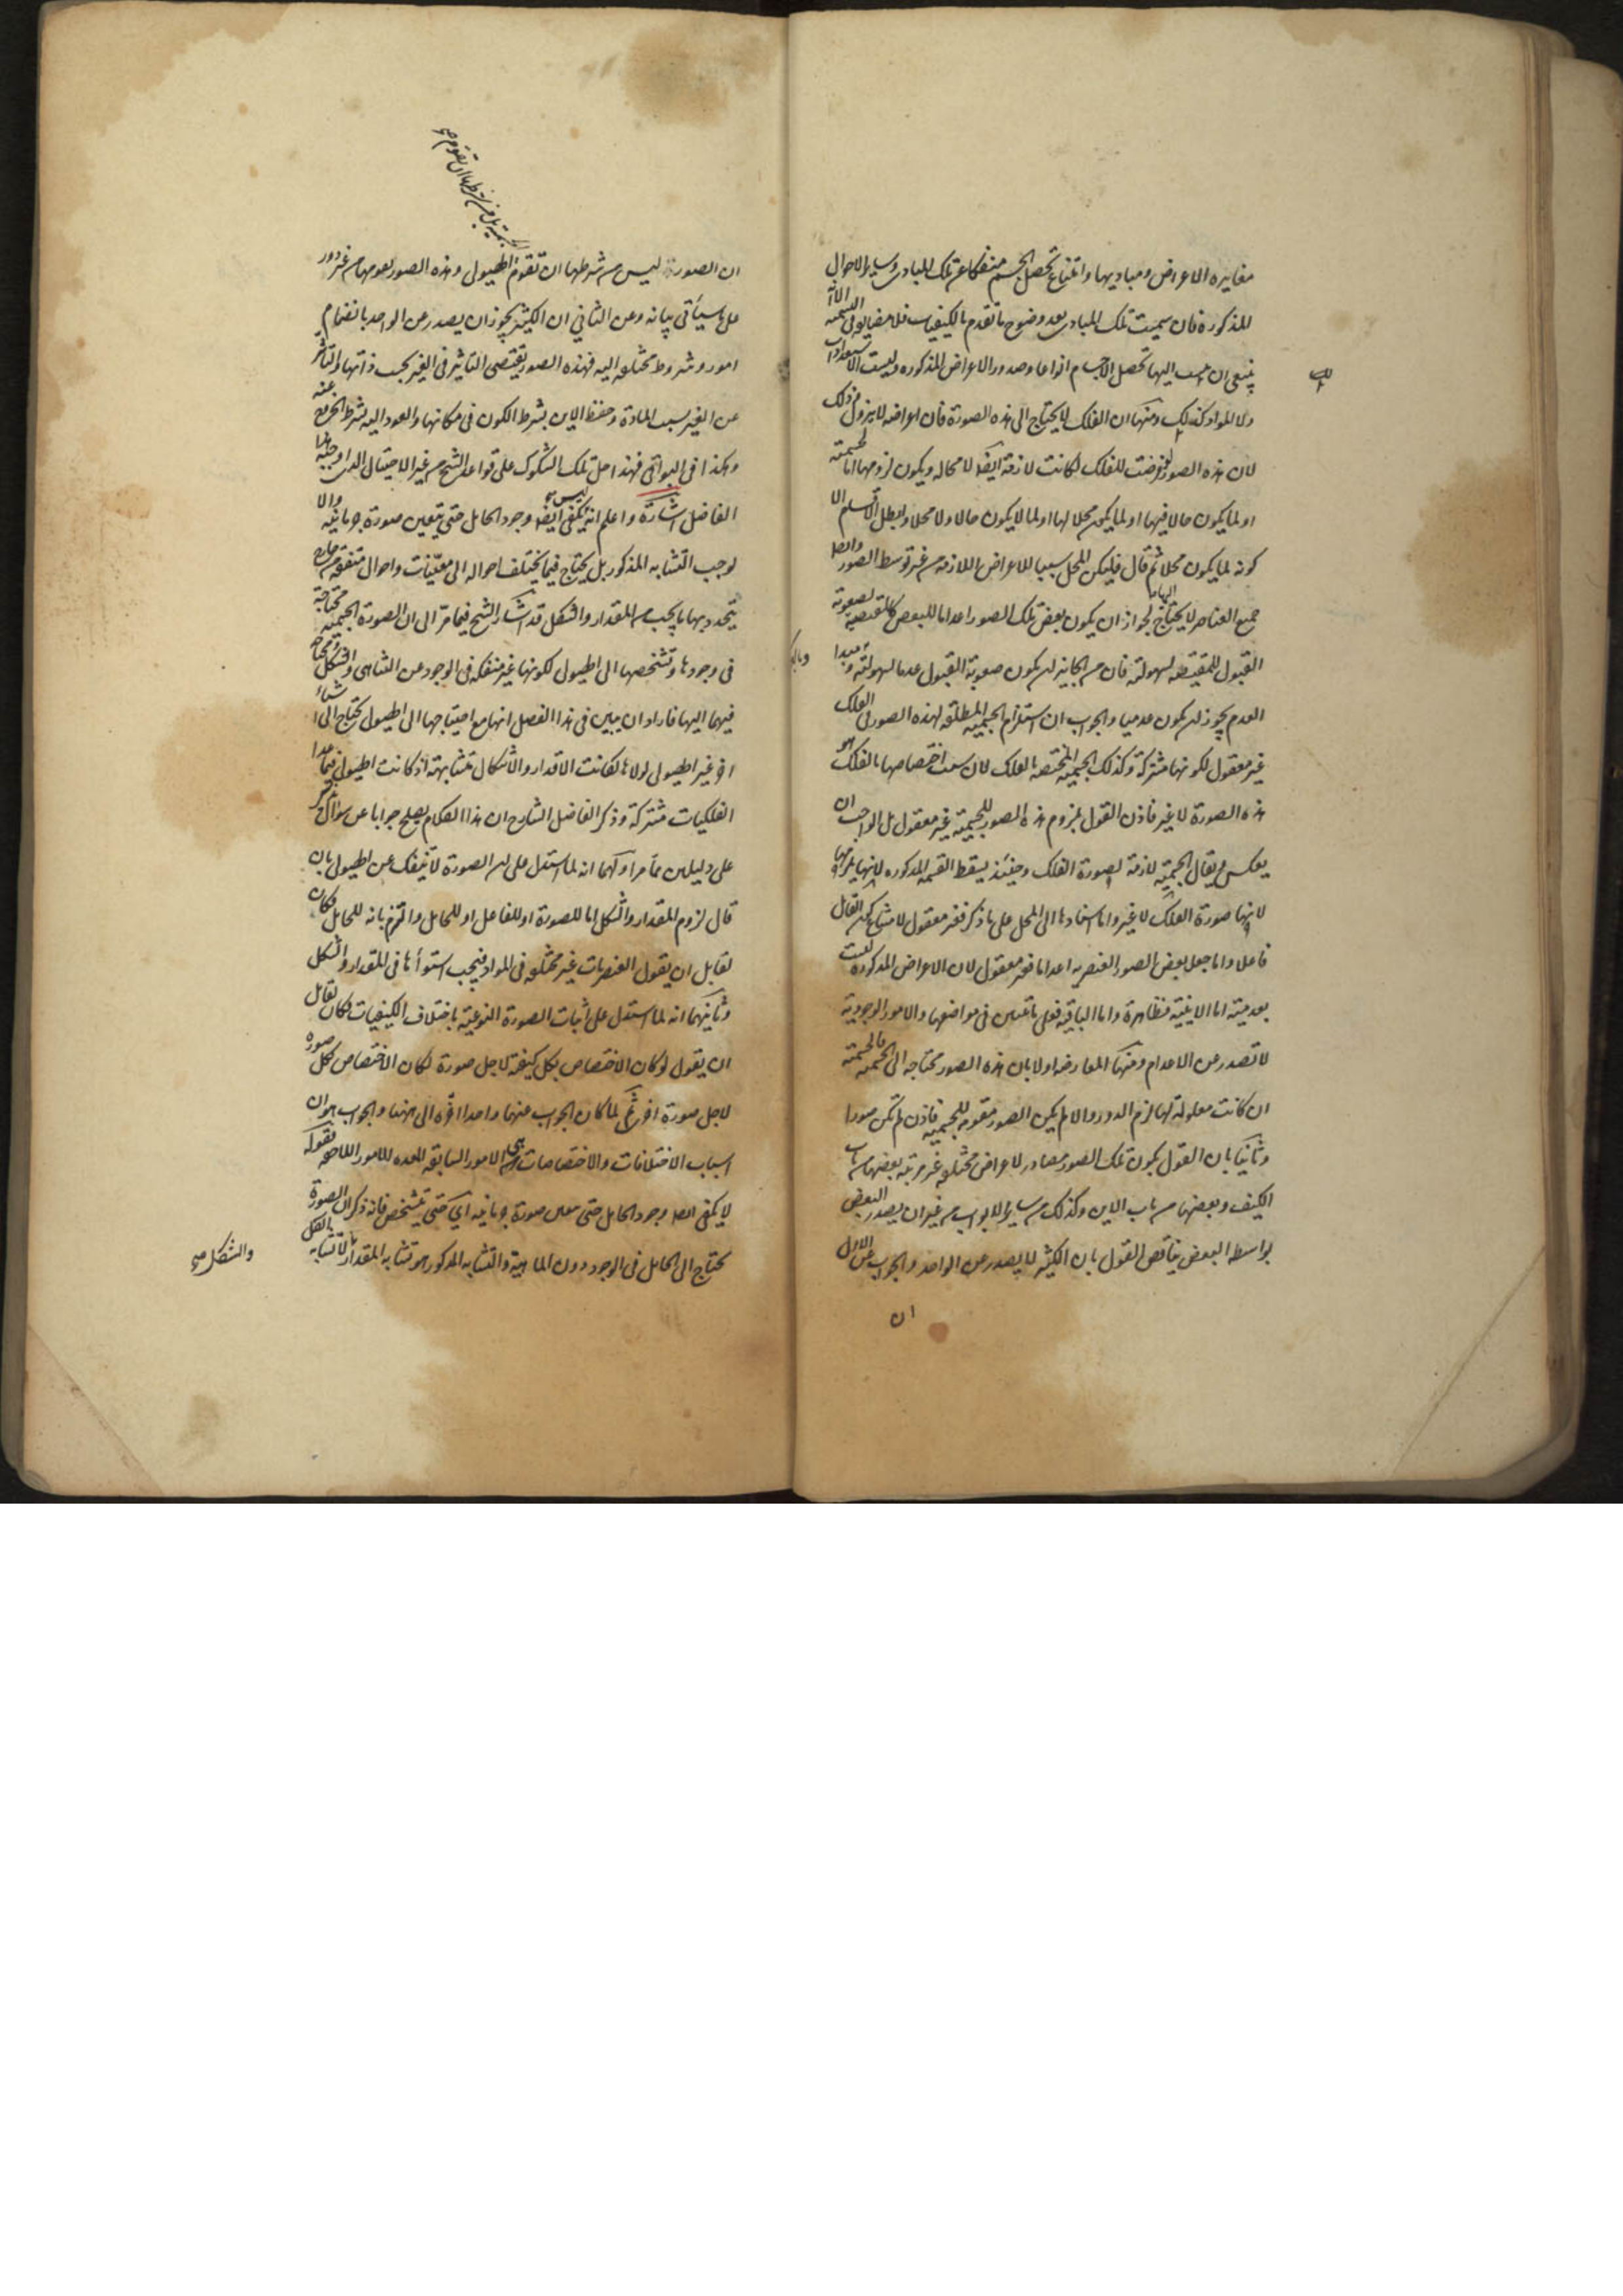 مغايره الاعراض ومباديها وامتناع تحصل الجسم منفكا عن تلك المبادى وساير الاحوال
المذكورة فان سميت تلك المبادى بعد وضوح ما تقدم بالكيفيات فلا مضايقه فى التسميه الا انه
ينبغى ان ينسب اليها تحصل الاجسام انواعا وصدور الاعراض المذكوره وليست الاستعدادات
ولا المواد كذلك ومنها ان الفلك لا يحتاج الى هذه الصورة فان اعراضه لا يزول وذلك
لان هذه الصور لو فرضت للفلك لكانت لازمة ايضا لا محاله ويكون لزومها اما لجسميته
او لما يكون حالا فيها او لما يكون محلا لها او لما لا يكون حالا ولا محلا وابطل الاقسام الا
كونه لما يكون محلا ثم قال فليكن المحل سببا للاعراض اللازمه من غير توسط الصور وايضا
جميع العناصر لا يحتاج اليها لجواز ان يكون بعض تلك الصور اعداما للبعض كالمقتضيه لصعوبة
القبول للمقتضيه لسهولته فان من الجايز ان يكون صعوبة القبول عدما لسهولته ومبدا
العدم يجوز ان يكون عدميا والجواب ان استلزام الجسمية المطلقه لهذه الصور فى الفلك
غير معقول لكونها مشتركة وكذلك الجسمية المختصه بالفلك لان سبب اختصاصها بالفلك هو
هذه الصورة لا غير فاذن القول بلزوم هذه الصور للجسمية غير معقول بل الواجب ان
يعكس ويقال الجسمية لازمة لصورة الفلك وحينئذ يسقط القسمه المذكوره لانها يلزمها
لانها صورة الفلك لا غير واما اسنادها الى المحل على ما ذكر فغير معقول لامتناع كون القابل
فاعلا واما جعل بعض الصور العنصريه اعداما فغير معقول لان الاعراض المذكورة ليست
بعدمية اما الاينية فظاهرة واما الباقية فعلى ما تبين فى مواضعها والامور الوجودية
لا تصدر عن الاعدام ومنها المعارضه اولا بان هذه الصور محتاجه الى الجسميه فالجسمية
ان كانت معلولة لها لزم الدور والا لم يكن الصور مقومه للجسميه فاذن لم تكن صورا
وثانيا بان القول بكون تلك الصور مصادر لاعراض مختلفه غير مرتبه بعضها من باب
الكيف وبعضها من باب الاين وكذلك من ساير الابواب من غير ان يصدر البعض
بواسطه البعض يناقض القول بان الكثير لا يصدر عن الواحد والجواب عن الاول
ان
ان الصورة ليس من شرطها ان تقوم الهيولى وهذه الصور يقومها من غير دور
على ما سيأتى بيانه وعن الثانى ان الكثير يجوز ان يصدر عن الواحد بانضمام
امور وشروط مختلفه اليه فهذه الصور يقتضى التاثير فى الغير بحسب ذاتها والتاثر
عن الغير بسبب المادة وحفظ الاين بشرط الكون فى مكانها والعود اليه بشرط الخروج عنه
وهكذا فى البواقى فهذا حل تلك الشكوك على قواعد الشيخ من غير الاحتيال الذى اوجبه هذا
الفاضل اشارة واعلم انه ليس يكفى ايضا وجود الحامل حتى يتعين صورة جرمانيه والا
لوجب التشابه المذكور بل يحتاج فيما يختلف احواله الى معينات واحوال متفقه من خارج
يتحدد بها ما يجب من المقدار والشكل قد اشار الشيخ فيما مر الى ان الصورة الجسميه محتاجة
فى وجودها وتشخصها الى الهيولى لكونها غير منفكه فى الوجود عن التناهى والتشكل ومحتاجه
فيهما اليها فاراد ان يبين فى هذا الفصل انها مع احتياجها الى الهيولى تحتاج الى اشياء
اخر غير الهيولى لولاها لكانت الاقدار والاشكال متشابهة اذ كانت الهيولى فيما عدا
الفلكيات مشتركة وذكر الفاضل الشارح ان هذا الكلام يصلح جوابا عن سؤال يذكر
على دليلين مما مر اولهما انه لما استدل على ان الصورة لا تنفك عن الهيولى بان
قال لزوم المقدار والشكل اما للصورة او للفاعل او للحامل والتزم بانه للحامل فكان
لقايل ان يقول العنصريات غير مختلفه فى المواد فيجب استوأها فى المقدار والشكل
وثانيهما انه لما استدل على اثبات الصورة النوعية باختلاف الكيفيات فكان لقايل
ان يقول لو كان الاختصاص بكل كيفية لاجل صورة لكان الاختصاص بكل صوره
لاجل صورة اخرى ثم لما كان الجواب عنهما واحدا اخره الى ههنا والجواب هو ان
اسباب الاختلافات والاختصاصات هى الامور السابقه المعده للامور اللاحقه فقوله
لا يكفى ايضا وجود الحامل حتى يتعين صورة جرمانيه اى حتى يتشخص فانه ذكر ان الصورة
تحتاج الى الحامل فى الوجود دون الماهية والتشابه المذكور هو تشابه المقدار لا تشابه
والشكل صح